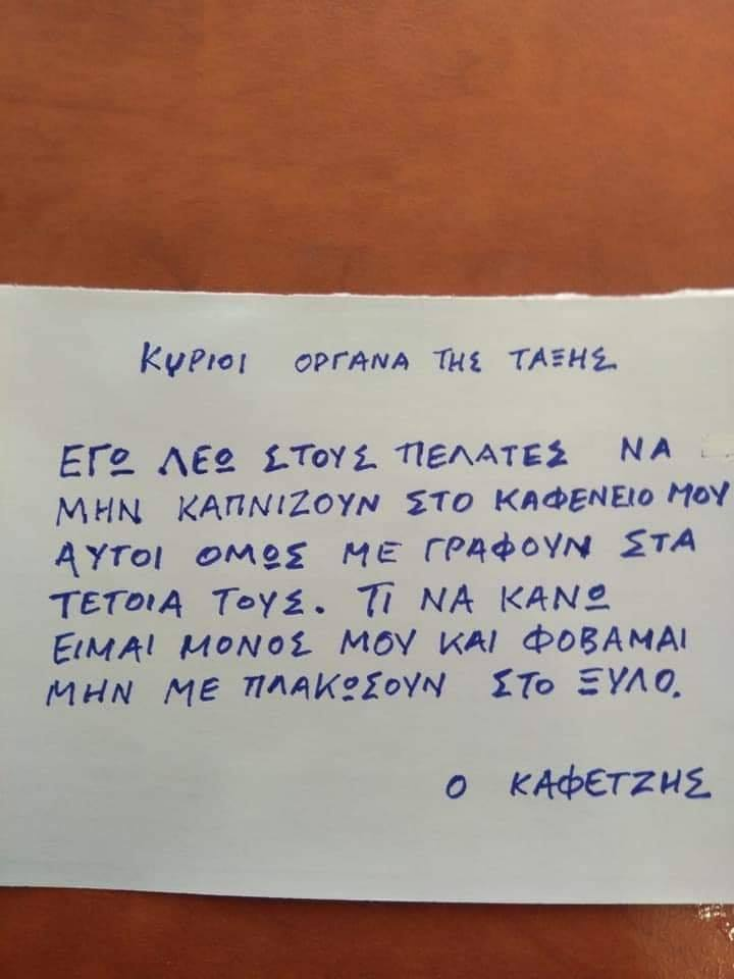 ΚΥΡΙΟΙ ΟΡΓΑΝΑ ΤΗΣ ΤΑΞΗΣ
ΕΓΩ ΛΕΩ ΣΤΟΥΣ ΠΕΛΑΤΕΣ ΝΑ
ΜΗΝ ΚΑΠΝΙΖΟΥΝ ΣΤΟ ΚΑΦΕΝΕΙΟ ΜΟΥ
ΑΥΤΟΙ ΟΜΩΣ ΜΕ ΓΡΑΦΟΥΝ ΣΤΑ
ΤΕΤΟΙΑ ΤΟΥΣ. ΤΙ ΝΑ ΚΑΝΩ
ΕΙΜΑΙ ΜΟΝΟΣ ΜΟΥ ΚΑΙ ΦΟΒΑΜΑΙ
ΜΗΝ ΜΕ ΠΛΑΚΩΣΟΥΝ ΣΤΟ ΞΥΛΟ.
Ο ΚΑΦΕΤΖΗΣ